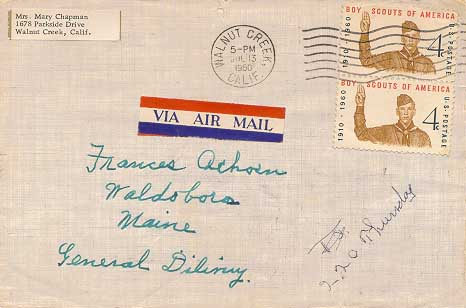 Mrs. Mary Chapman
1678 Parkside Drive
Walnut Creek, Calif.
WALNUT CREEK,
5-PM
JUL 13
1960
CALIF.
BOY SCOUTS OF AMERICA
1910-1960
4¢
U.S. POSTAGE
BOY SCOUTS OF AMERICA
1910-1960
4¢
U.S. POSTAGE
VIA AIR MAIL
Frances Achorn
Waldoboro
Maine
General Dilivry.
2.20 Thursday